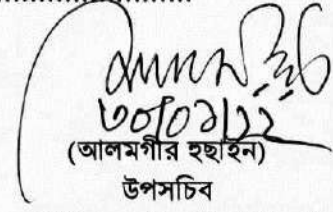 ৩০/০১/২২
(আলমগীর হুছাইন)
উপসচিব